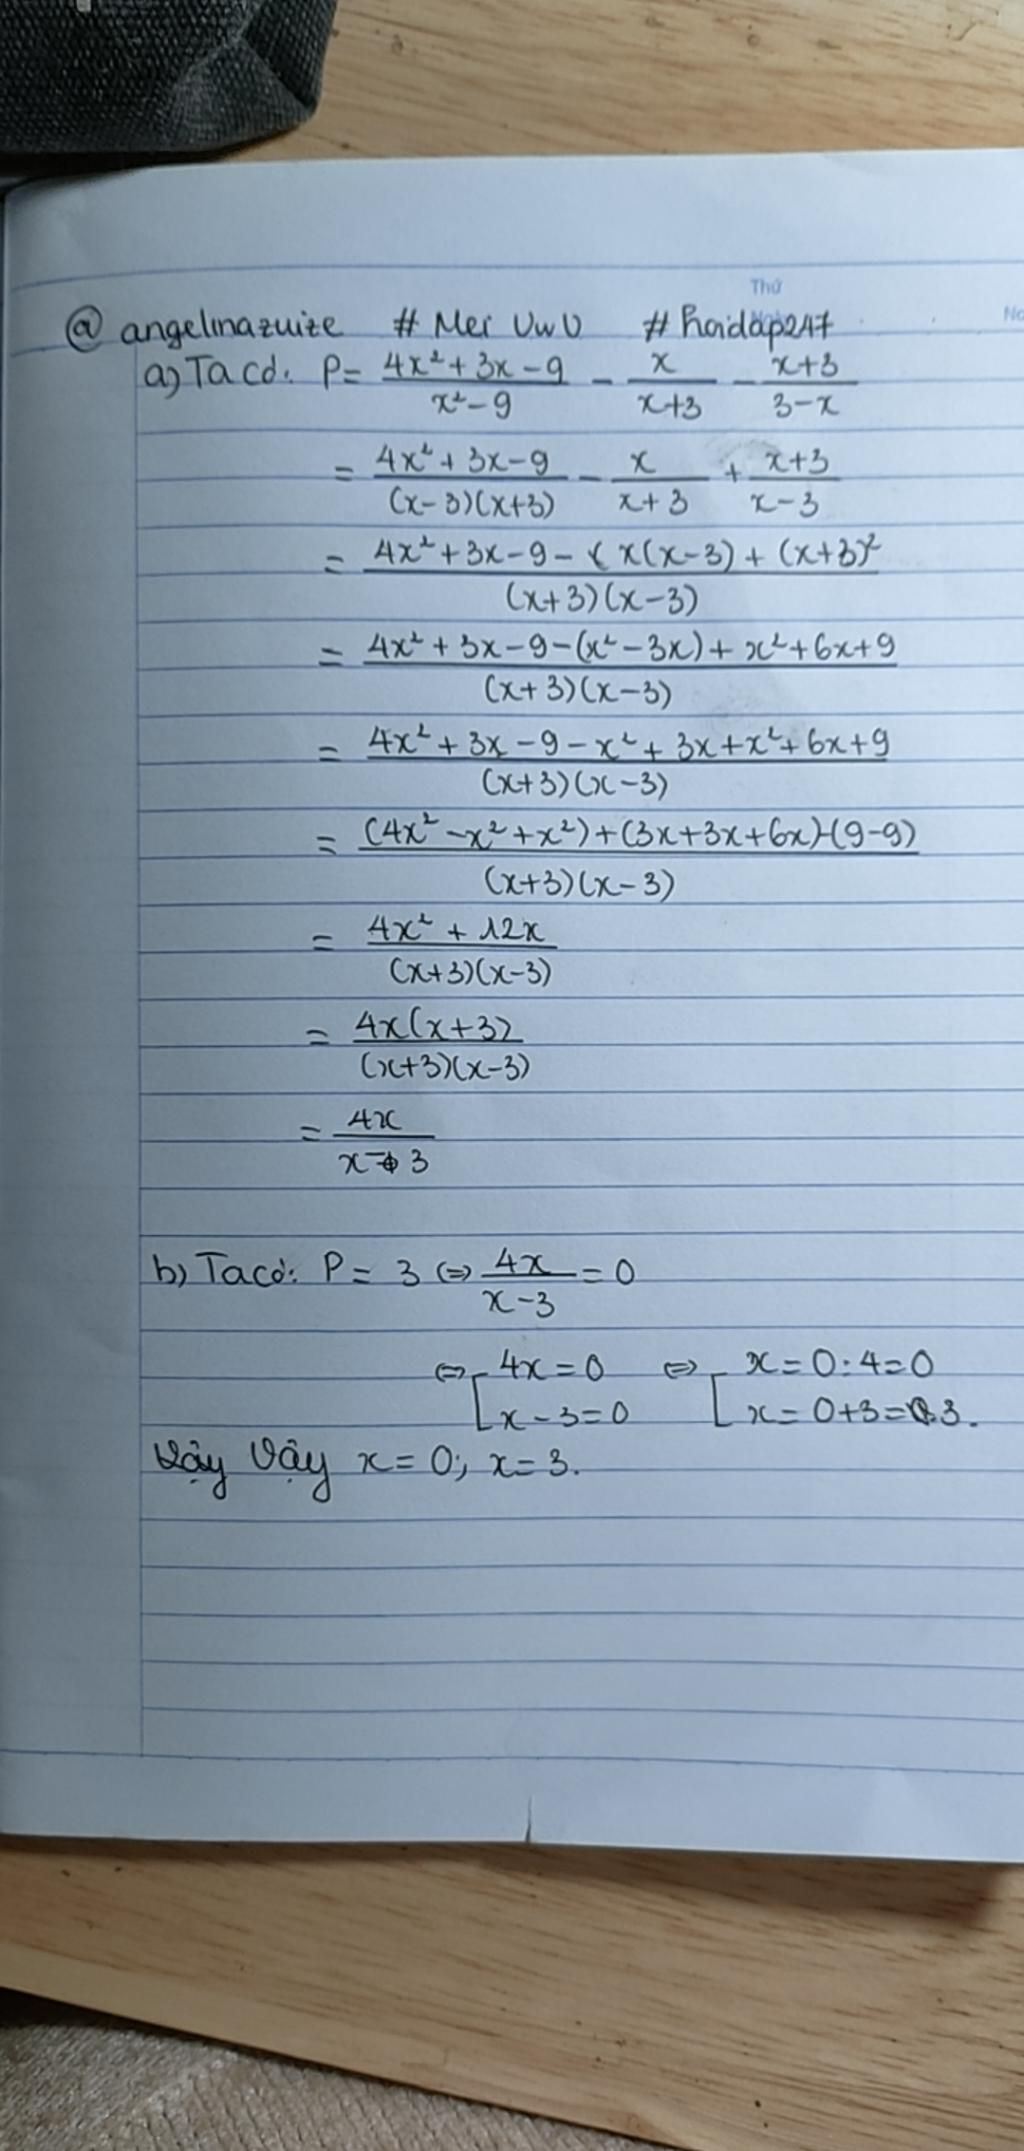 Thứ
@ angelinazuize # Mei UwU # hoidap247
a) Ta có: P = (4x² + 3x - 9)/(x² - 9) - x/(x+3) - (x+3)/(3-x)
= (4x² + 3x - 9)/((x-3)(x+3)) - x/(x+3) + (x+3)/(x-3)
= (4x² + 3x - 9 - x(x-3) + (x+3)²)/((x+3)(x-3))
= (4x² + 3x - 9 - (x² - 3x) + x² + 6x + 9)/((x+3)(x-3))
= (4x² + 3x - 9 - x² + 3x + x² + 6x + 9)/((x+3)(x-3))
= ((4x² - x² + x²) + (3x + 3x + 6x) - (9 - 9))/((x+3)(x-3))
= (4x² + 12x)/((x+3)(x-3))
= (4x(x+3))/((x+3)(x-3))
= 4x/(x - 3)
b) Ta có: P = 3 ⇔ 4x/(x-3) = 0
⇔ [ 4x = 0 ⇔ [ x = 0 : 4 = 0
x - 3 = 0 x = 0 + 3 = 3.
Vậy Vậy x = 0; x = 3.